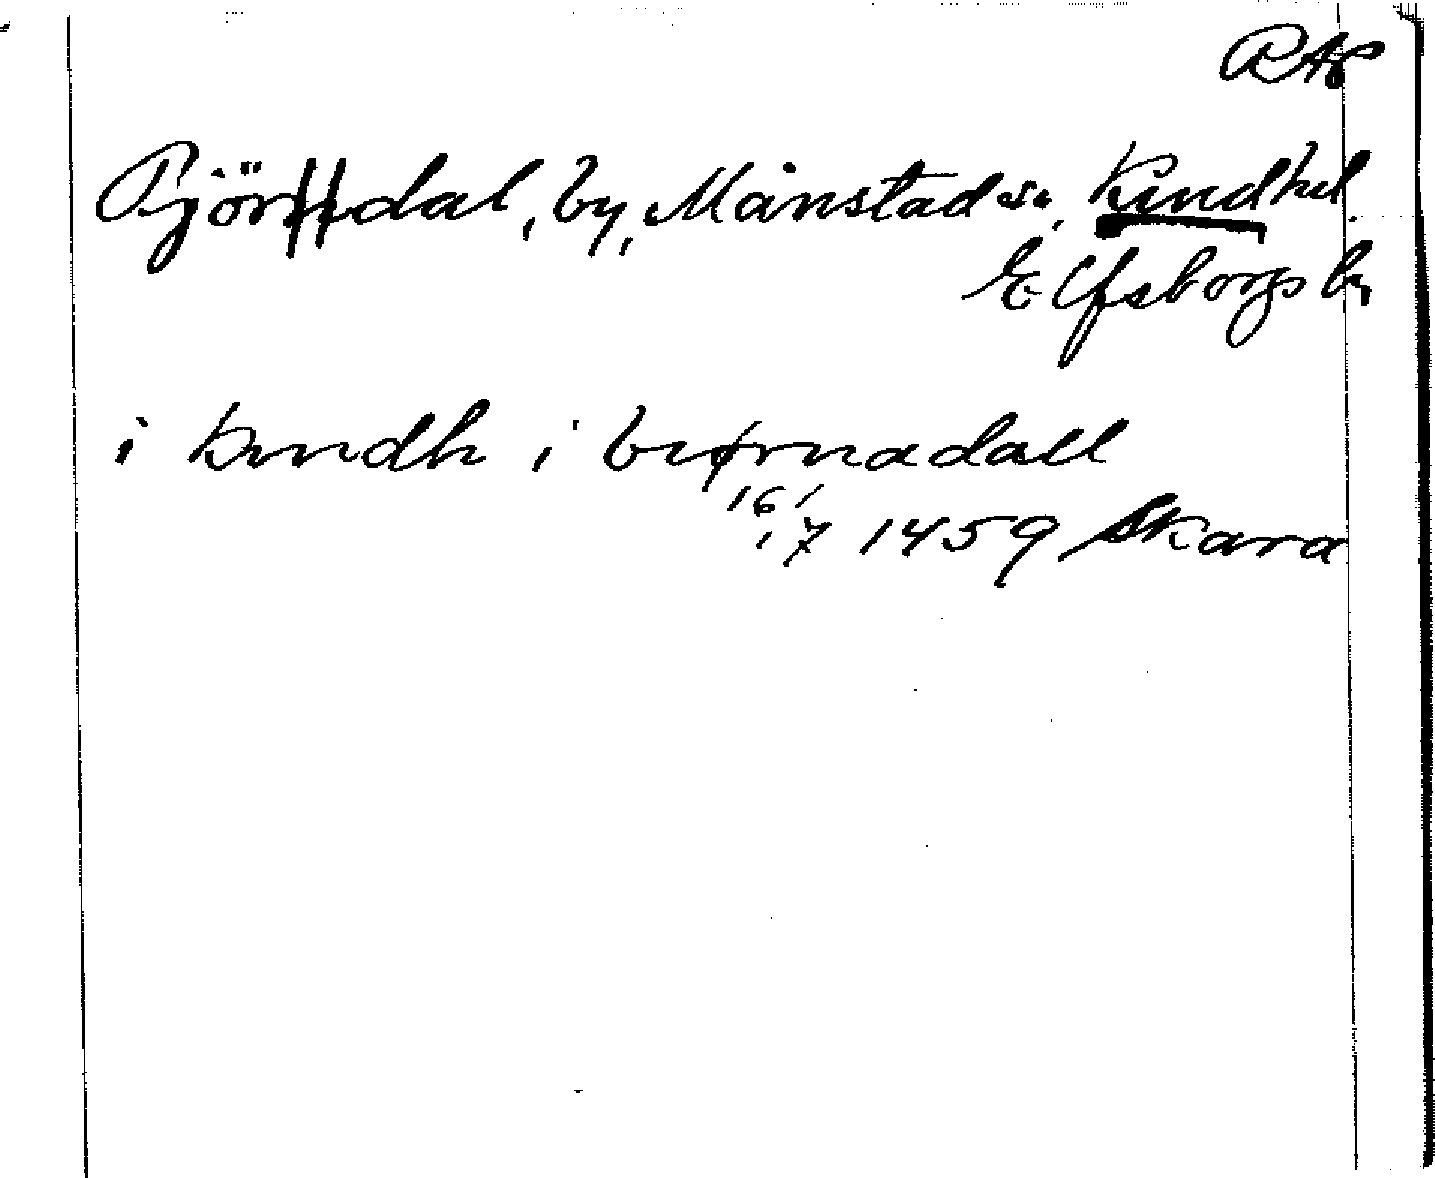 RAP
Björndal, by, Månstad sn, Kind hd.
Elfsborgs ln
i kindh i biørnadall
16/7 1459 Skara